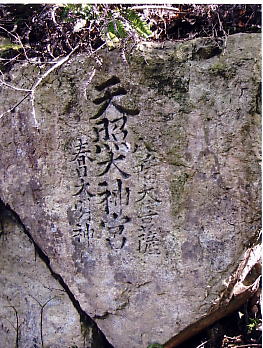 八幡大菩薩
天照大神宮
春日大明神